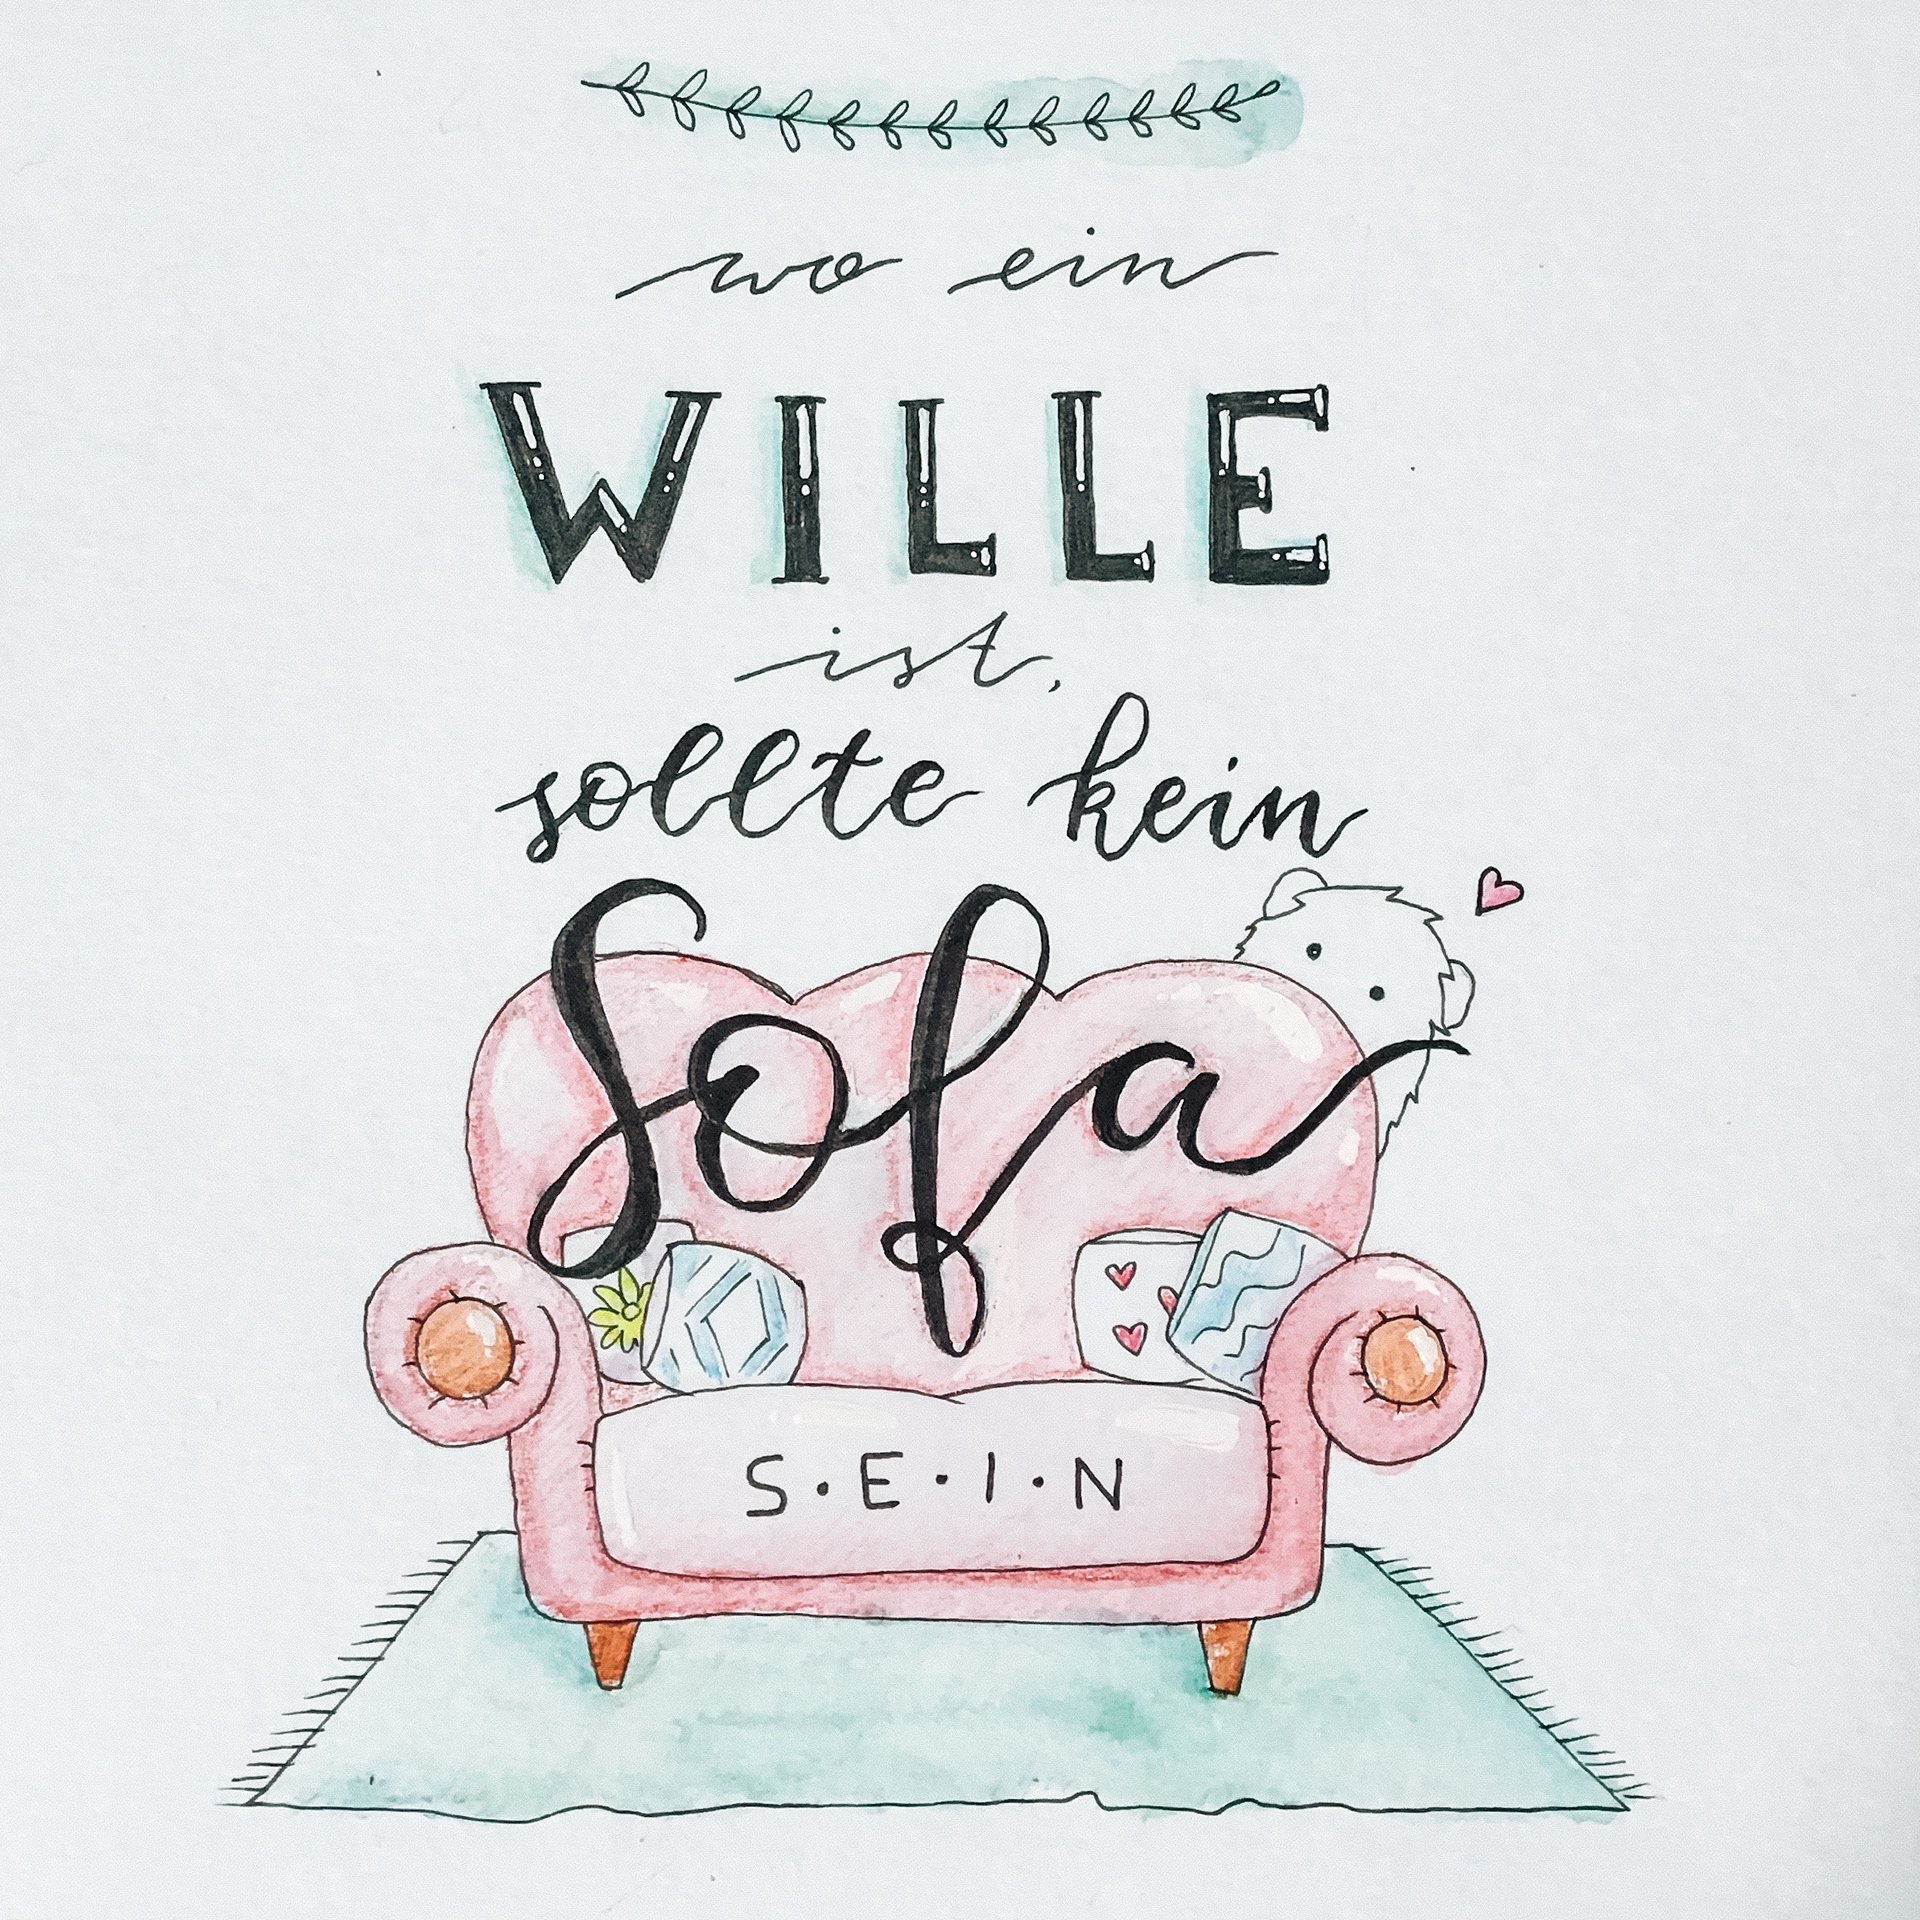 wo ein
WILLE
ist,
sollte kein
Sofa
S·E·I·N